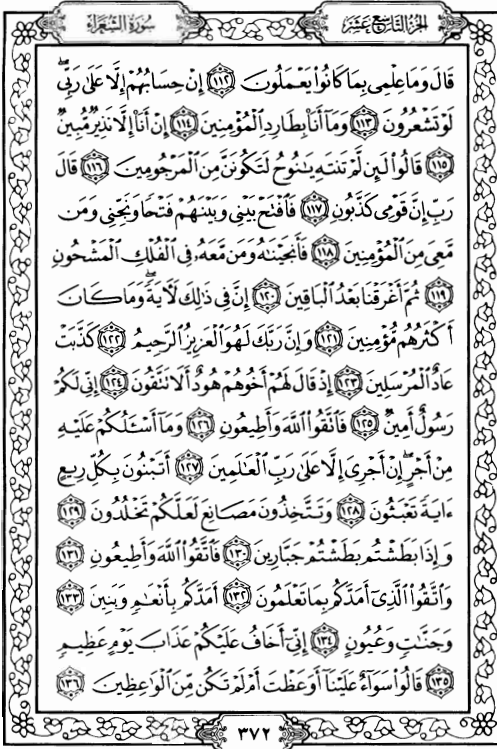 الجزء التاسع عشر
سورة الشعراء
قَالَ وَمَا عِلْمِى بِمَا كَانُوا۟ يَعْمَلُونَ ﴿١١٢﴾ إِنْ حِسَابُهُمْ إِلَّا عَلَىٰ رَبِّى ۖ
لَوْ تَشْعُرُونَ ﴿١١٣﴾ وَمَآ أَنَا۠ بِطَارِدِ ٱلْمُؤْمِنِينَ ﴿١١٤﴾ إِنْ أَنَا۠ إِلَّا نَذِيرٌ مُّبِينٌ
﴿١١٥﴾ قَالُوا۟ لَئِن لَّمْ تَنتَهِ يَٰنُوحُ لَتَكُونَنَّ مِنَ ٱلْمَرْجُومِينَ ﴿١١٦﴾ قَالَ
رَبِّ إِنَّ قَوْمِى كَذَّبُونِ ﴿١١٧﴾ فَٱفْتَحْ بَيْنِى وَبَيْنَهُمْ فَتْحًا وَنَجِّنِى وَمَن
مَّعِىَ مِنَ ٱلْمُؤْمِنِينَ ﴿١١٨﴾ فَأَنجَيْنَٰهُ وَمَن مَّعَهُۥ فِى ٱلْفُلْكِ ٱلْمَشْحُونِ
﴿١١٩﴾ ثُمَّ أَغْرَقْنَا بَعْدُ ٱلْبَاقِينَ ﴿١٢٠﴾ إِنَّ فِى ذَٰلِكَ لَءَايَةً ۖ وَمَا كَانَ
أَكْثَرُهُم مُّؤْمِنِينَ ﴿١٢١﴾ وَإِنَّ رَبَّكَ لَهُوَ ٱلْعَزِيزُ ٱلرَّحِيمُ ﴿١٢٢﴾ كَذَّبَتْ
عَادٌ ٱلْمُرْسَلِينَ ﴿١٢٣﴾ إِذْ قَالَ لَهُمْ أَخُوهُمْ هُودٌ أَلَا تَتَّقُونَ ﴿١٢٤﴾ إِنِّى لَكُمْ
رَسُولٌ أَمِينٌ ﴿١٢٥﴾ فَٱتَّقُوا۟ ٱللَّهَ وَأَطِيعُونِ ﴿١٢٦﴾ وَمَآ أَسْـَٔلُكُمْ عَلَيْهِ
مِنْ أَجْرٍ ۖ إِنْ أَجْرِىَ إِلَّا عَلَىٰ رَبِّ ٱلْعَٰلَمِينَ ﴿١٢٧﴾ أَتَبْنُونَ بِكُلِّ رِيعٍ
ءَايَةً تَعْبَثُونَ ﴿١٢٨﴾ وَتَتَّخِذُونَ مَصَانِعَ لَعَلَّكُمْ تَخْلُدُونَ ﴿١٢٩﴾
وَإِذَا بَطَشْتُم بَطَشْتُمْ جَبَّارِينَ ﴿١٣٠﴾ فَٱتَّقُوا۟ ٱللَّهَ وَأَطِيعُونِ ﴿١٣١﴾
وَٱتَّقُوا۟ ٱلَّذِىٓ أَمَدَّكُم بِمَا تَعْلَمُونَ ﴿١٣٢﴾ أَمَدَّكُم بِأَنْعَٰمٍ وَبَنِينَ ﴿١٣٣﴾
وَجَنَّٰتٍ وَعُيُونٍ ﴿١٣٤﴾ إِنِّىٓ أَخَافُ عَلَيْكُمْ عَذَابَ يَوْمٍ عَظِيمٍ
﴿١٣٥﴾ قَالُوا۟ سَوَآءٌ عَلَيْنَآ أَوَعَظْتَ أَمْ لَمْ تَكُن مِّنَ ٱلْوَٰعِظِينَ ﴿١٣٦﴾
٣٧٢